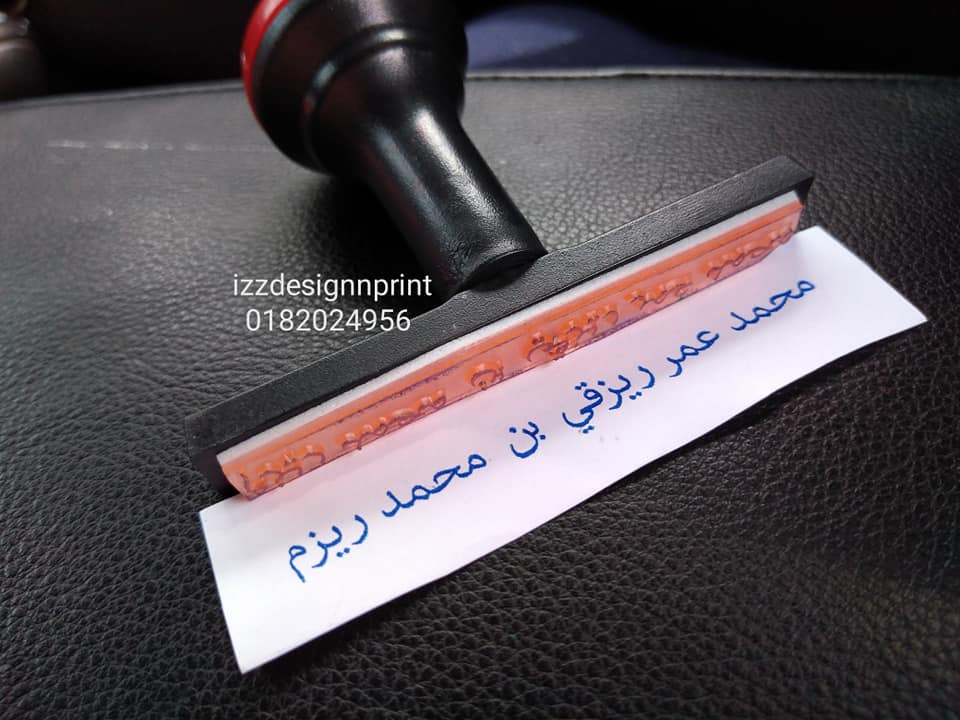 izzdesignnprint
0182024956
محمد عمر ريزقي بن محمد ريزم